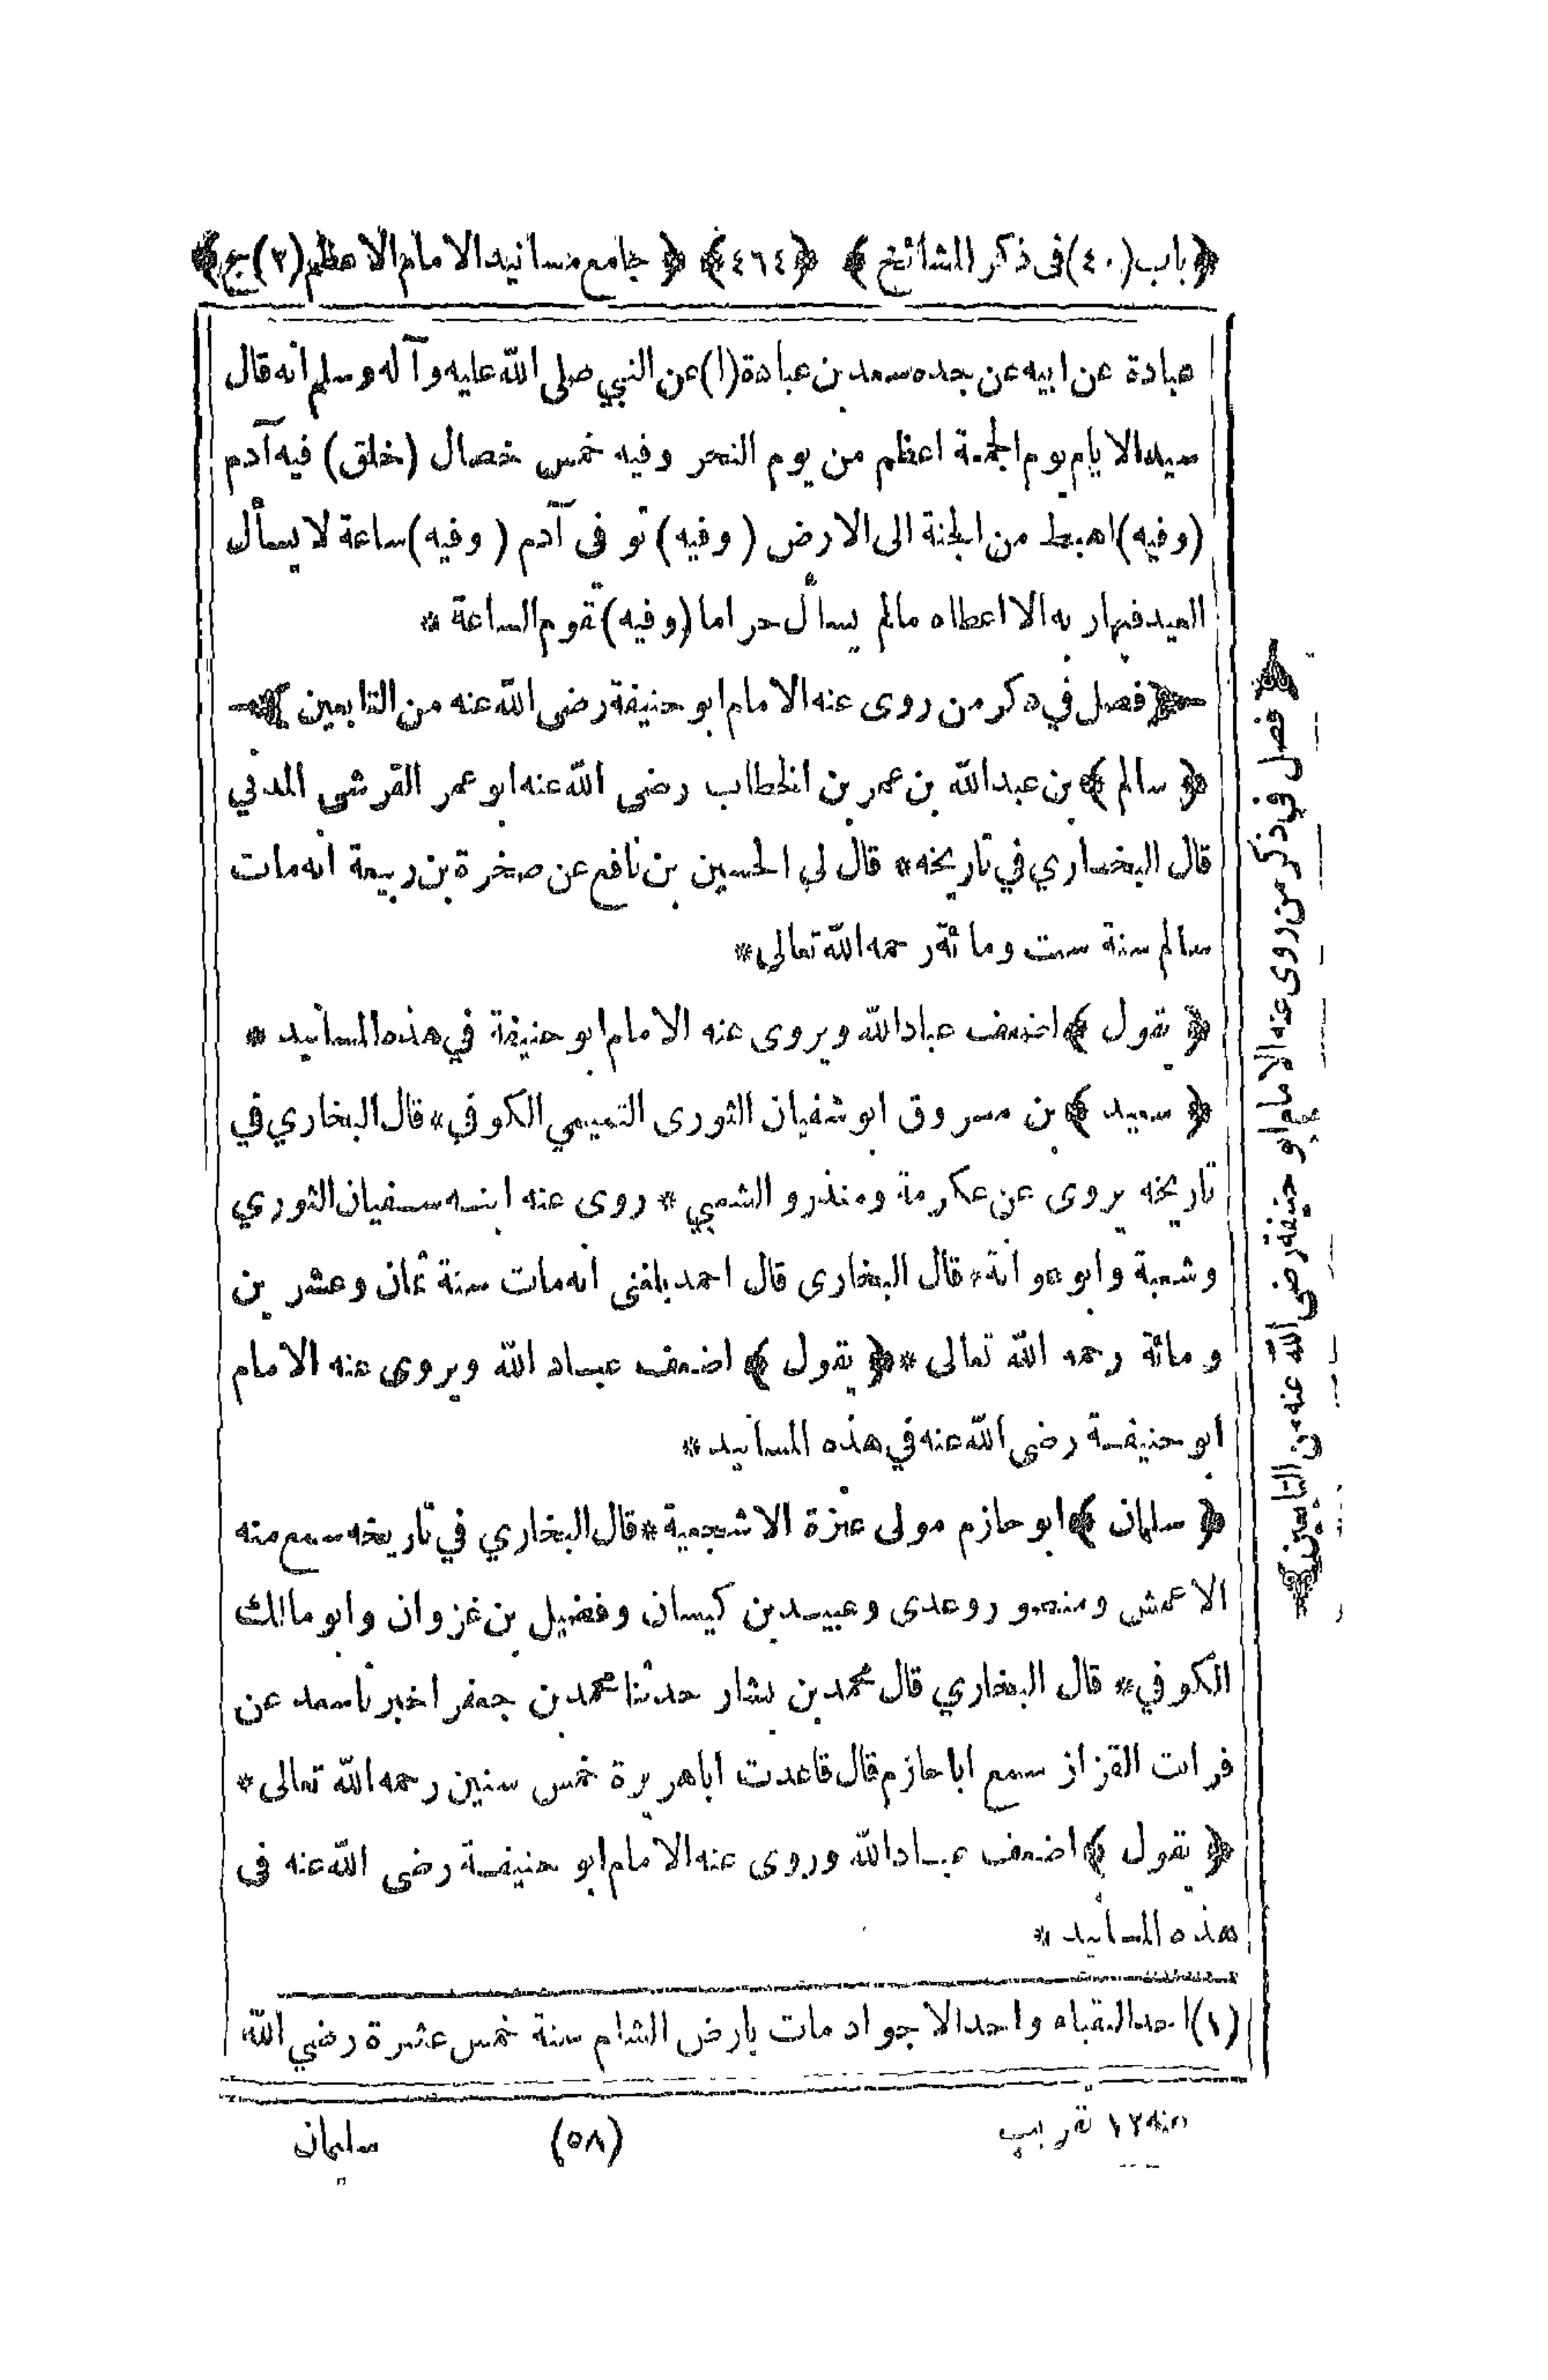 ﴿باب(٤٠)فى ذكر المشائخ﴾ ﴿٤٦٤﴾ ﴿جامع مسانيد الامام الاعظم(٢)ج﴾
عبادة عن ابيه عن جده سعد بن عبادة(١)عن النبي صلى الله عليه وآله وسلم انه قال
سيد الايام يوم الجمعة اعظم من يوم النحر وفيه خمس خصال (خلق) فيه آدم
(وفيه)اهبط من الجنة الى الارض (وفيه) توفى آدم (وفيه)ساعة لا يسأل
العبد فيها ربه الا اعطاه مالم يسأل حراما(وفيه)تقوم الساعة *
﴿فصل في ذكر من روى عنه الامام ابو حنيفة رضى الله عنه من التابعين﴾
﴿سالم﴾ بن عبد الله بن عمر بن الخطاب رضى الله عنه ابو عمر القرشى المدني
قال البخاري في تاريخه * قال لي الحسين بن نافع عن صخرة بن ربيعة انه مات
سالم سنة ست ومائة رحمه الله تعالى *
﴿يقول﴾ اضعف عباد الله ويروى عنه الامام ابو حنيفة في هذه المسانيد *
﴿سعيد﴾ بن مسروق ابو سفيان الثورى التميمي الكوفي * قال البخاري في
تاريخه يروى عن عكرمة ومنذر والشعبي * روى عنه ابنه سفيان الثوري
وشعبة وابو عوانة * قال البخارى قال احمد بلغنى انه مات سنة ثمان وعشرين
ومائة رحمه الله تعالى * ﴿يقول﴾ اضعف عباد الله ويروى عنه الامام
ابو حنيفة رضى الله عنه في هذه المسانيد *
﴿سلمان﴾ ابو حازم مولى عزة الاشجعية * قال البخاري في تاريخه سمع منه
الاعمش ومنصور وعدى وعبيد بن كيسان وفضيل بن غزوان وابو مالك
الكوفي * قال البخاري قال محمد بن بشار حدثنا محمد بن جعفر اخبرنا سعد عن
فرات القزاز سمع اباحازم قال قاعدت اباهريرة خمس سنين رحمه الله تعالى *
﴿يقول﴾ اضعف عباد الله وروى عنه الامام ابو حنيفة رضى الله عنه فى
هذه المسانيد *
(١)احد النقباء واحد الاجواد مات بارض الشام سنة خمس عشرة رضي الله
عنه ١٢ تقريب
(٥٨)
سليمان
﴿فصل في ذكر من روى عنه الامام ابو حنيفة رضى الله عنه من التابعين﴾